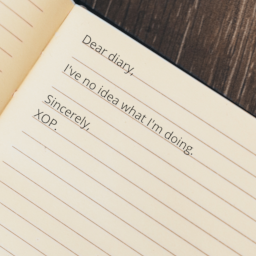 Dear diary,
I've no idea what I'm doing.
Sincerely,
XOP.